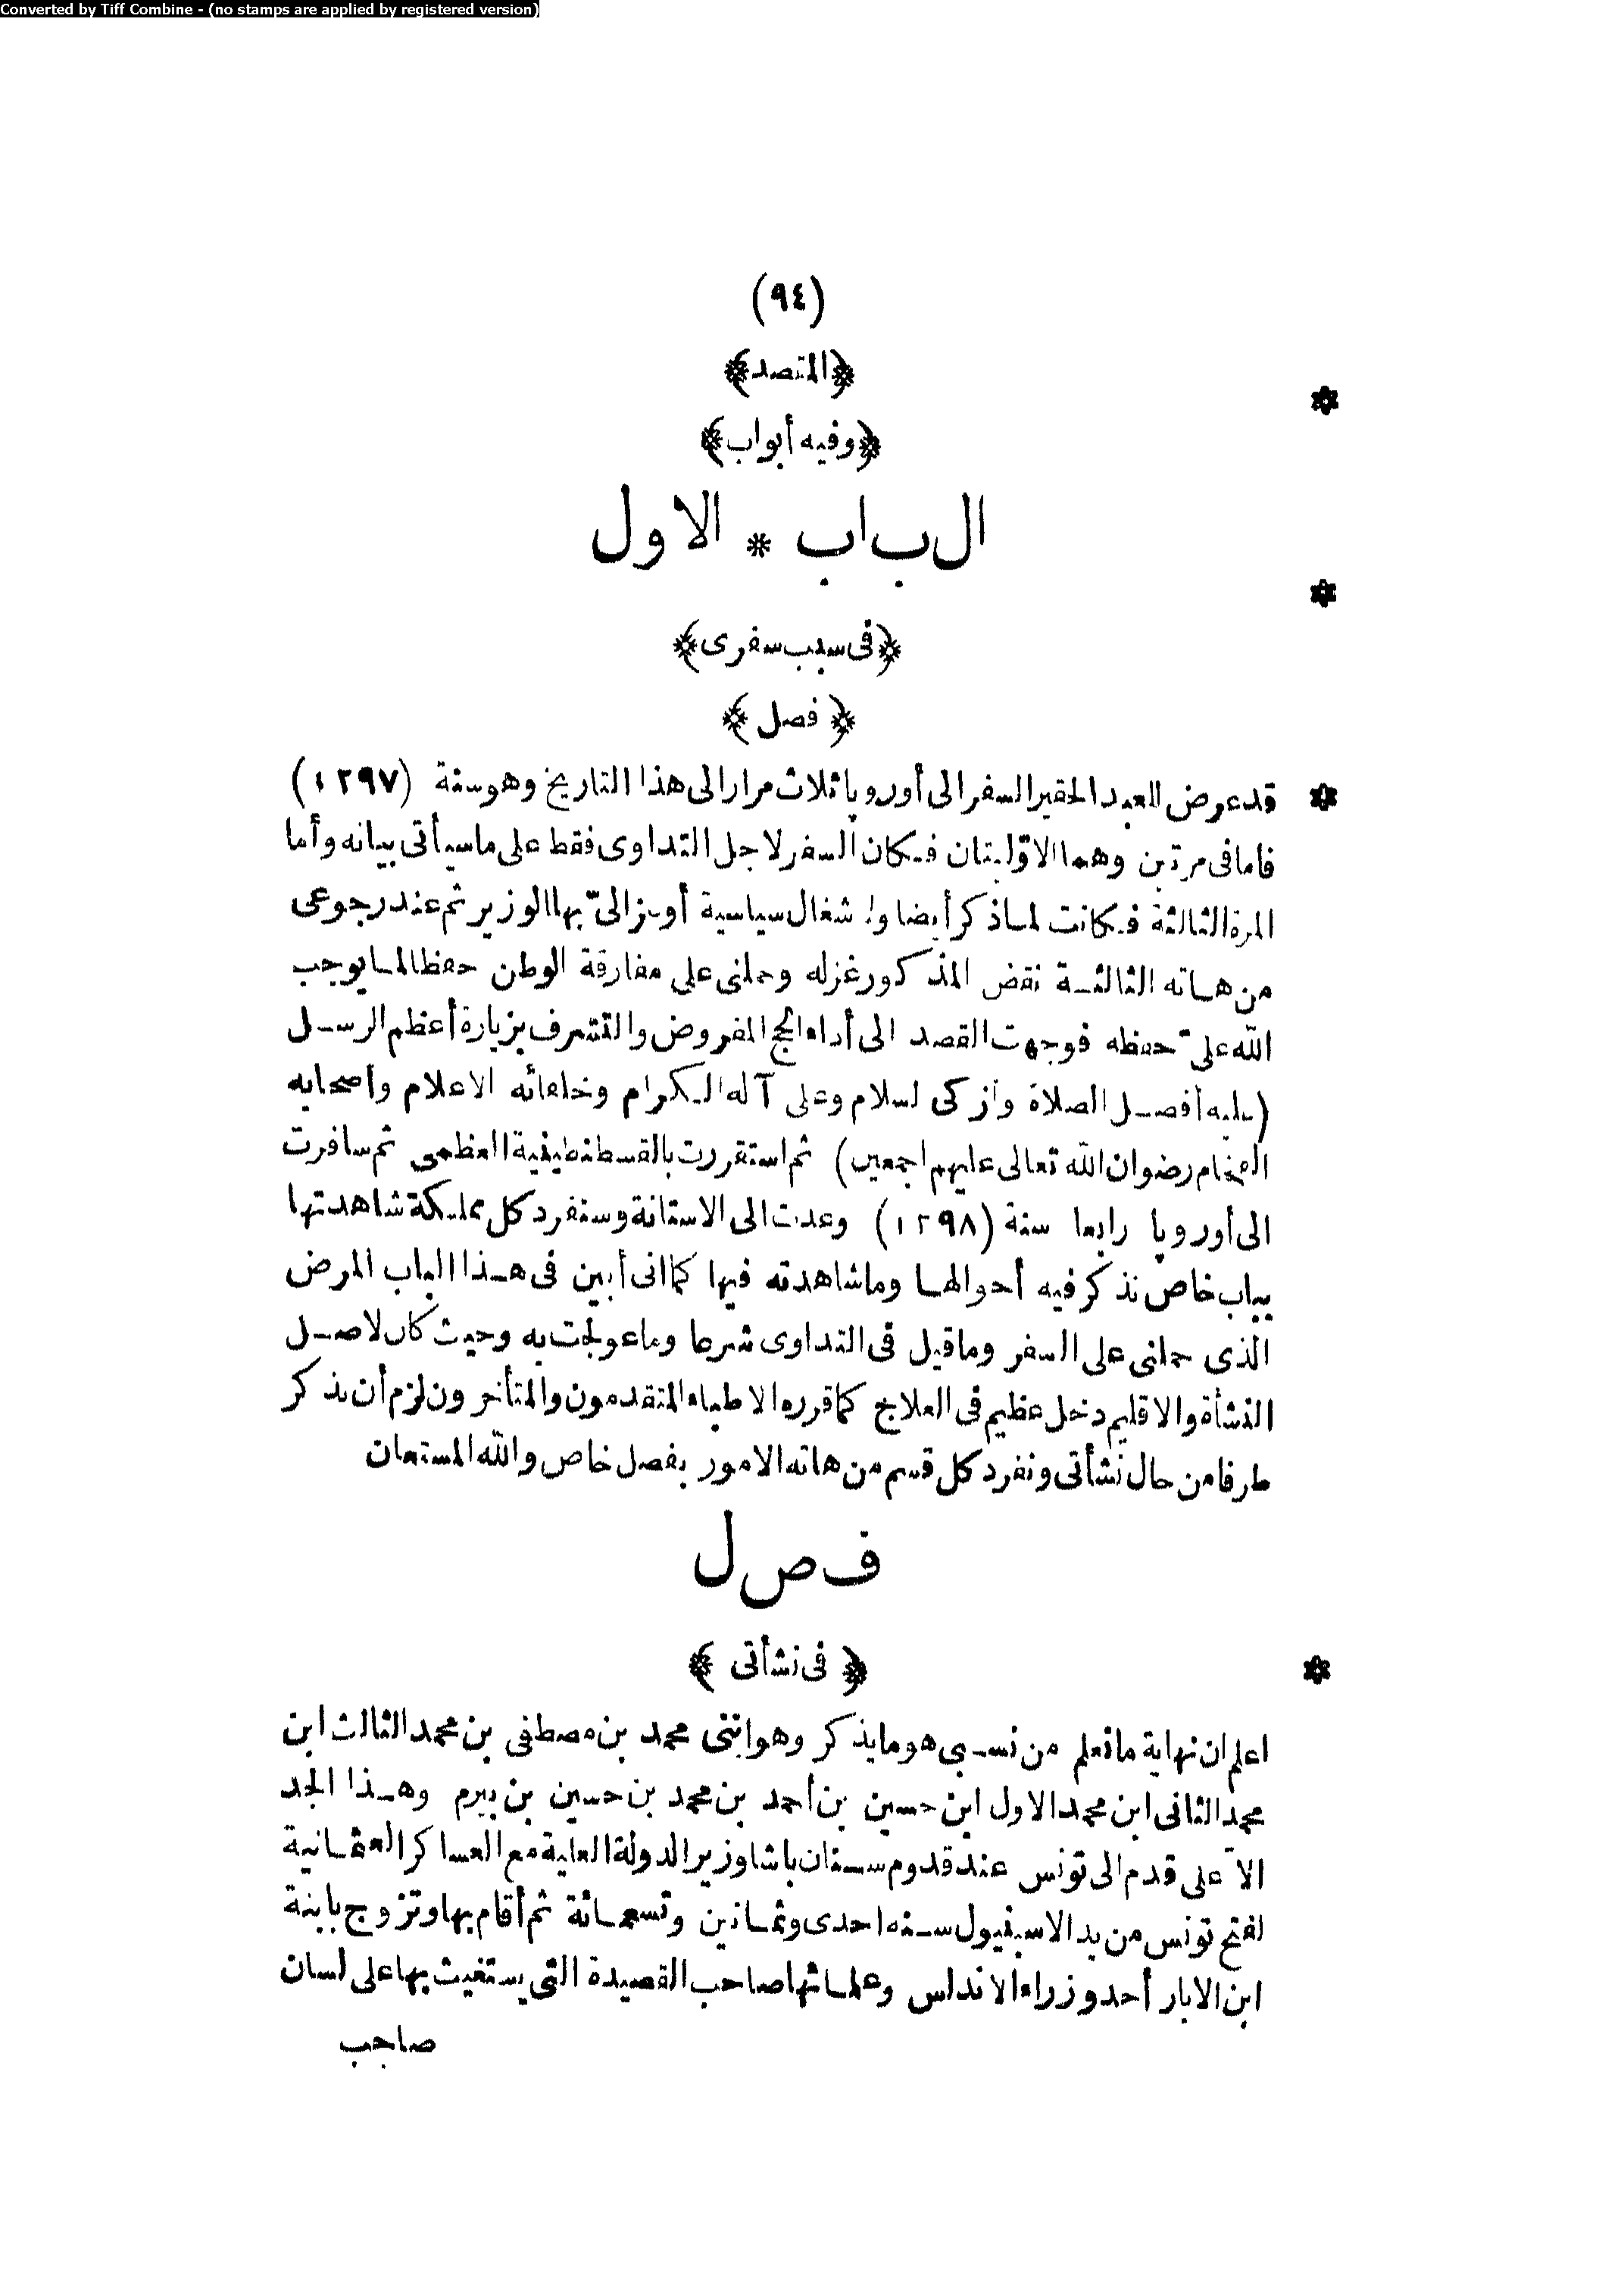 Converted by Tiff Combine - (no stamps are applied by registered version)
(٩٤)
﴿المقصد﴾
﴿وفيه أبواب﴾
الباب * الاول
﴿فى سبب سفرى﴾
﴿فصل﴾
قد عرض للعبد الحقير السفر الى أوروپا ثلاث مرار الى هذا التاريخ وهو سنة (١٢٩٧)
فاما فى مرتين وهما الاوّليتان فكان السفر لاجل التداوى فقط على ما سيأتى بيانه وأما
المرة الثالثة فكانت لما ذكر أيضا ولاشغال سياسية أوعز الىّ بها الوزير ثم عند رجوعى
من هاته الثالثة نقض المذكور غزله وحملنى على مفارقة الوطن حفظا لما يوجب
الله علىّ حفظه فوجهت القصد الى أداء الحج المفروض والتشرف بزيارة أعظم الرسل
(عليه أفضل الصلاة وأزكى السلام وعلى آله الكرام وخلفائه الاعلام وأصحابه
الفخام رضوان الله تعالى عليهم اجمعين) ثم استقررت بالقسطنطينية العظمى ثم سافرت
الى أوروپا رابعا سنة (١٢٩٨) وعدت الى الاستانة وسنفرد كل مملكة شاهدتها
بباب خاص نذكر فيه أحوالها وما شاهدته فيها كما انى أبين فى هذا الباب المرض
الذى حملنى على السفر وما قيل فى التداوى شرعا وما عولجت به وحيث كان لاصل
النشأة والاقليم دخل عظيم فى العلاج كما قرره الاطباء المتقدمون والمتأخرون لزم أن نذكر
طرفا من حال نشأتى ونفرد كل قسم من هاته الامور بفصل خاص والله المستعان
فصل
﴿فى نشأتى﴾
اعلم ان نهاية ما نعلم من نسبى هو ما يذكر وهو اننى محمد بن مصطفى بن محمد الثالث ابن
محمد الثانى ابن محمد الاول ابن حسين بن أحمد بن محمد بن حسين بن بيرم وهذا الجد
الاعلى قدم الى تونس عند قدوم سنان باشا وزير الدولة العلية مع العساكر العثمانية
لفتح تونس من يد الاسبنيول سنه احدى وثمانين وتسعمائة ثم أقام بها وتزوج بابنة
ابن الابار أحد وزراء الاندلس وعلمائها صاحب القصيدة التى يستغيث بها على لسان
صاحب